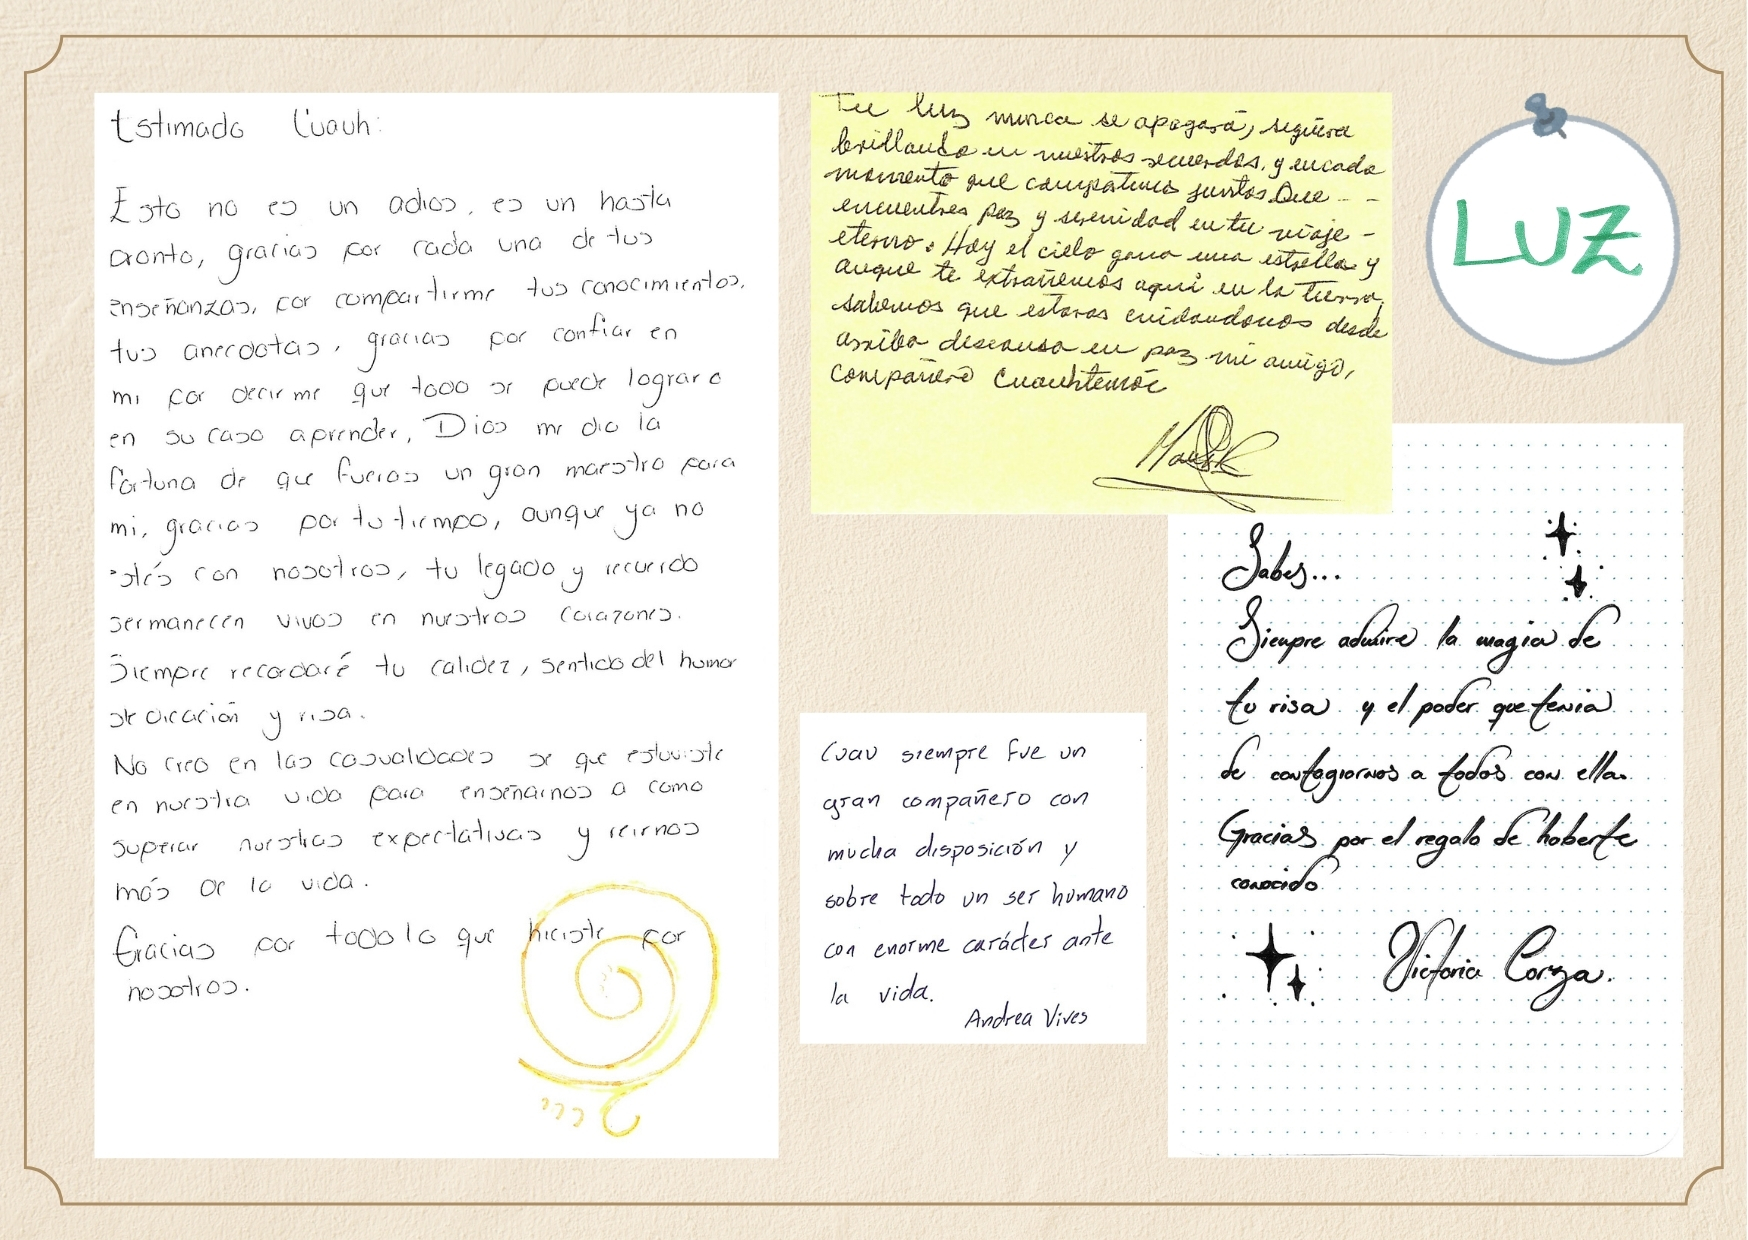 Estimado Cuauh:
Esto no es un adios, es un hasta
pronto, gracias por cada una de tus
enseñanzas, por compartirme tus conocimientos,
tus anecdotas, gracias por confiar en
mi por decirme que todo se puede lograr o
en su caso aprender, Dios me dio la
fortuna de que fueras un gran maestro para
mi, gracias por tu tiempo, aunque ya no
estés con nosotros, tu legado y recuerdo
permanecen vivos en nuestros corazones.
Siempre recordaré tu calidez, sentido del humor
dedicación y risa.
No creo en las casualidades se que estuviste
en nuestra vida para enseñarnos a como
superar nuestras expectativas y reirnos
más de la vida.
Gracias por todo lo que hiciste por
nosotros.
Tu luz nunca se apagará, seguira
brillando en nuestros recuerdos, y en cada
momento que compartimos juntos. Que - -
encuentres paz y serenidad en tu viaje -
eterno. Hoy el cielo gana una estrella y
auque te extrañemos aqui en la tierra,
sabemos que estaras cuidandonos desde
arriba descansa en paz mi amigo,
compañero Cuauhtemoc
LUZ
Sabes...
Siempre admire la magia de
tu risa y el poder que tenia
de contagiarnos a todos con ella.
Gracias por el regalo de haberte
conocido
Victoria Corza.
Cuau siempre fue un
gran compañero con
mucha disposición y
sobre todo un ser humano
con enorme carácter ante
la vida.
Andrea Vives